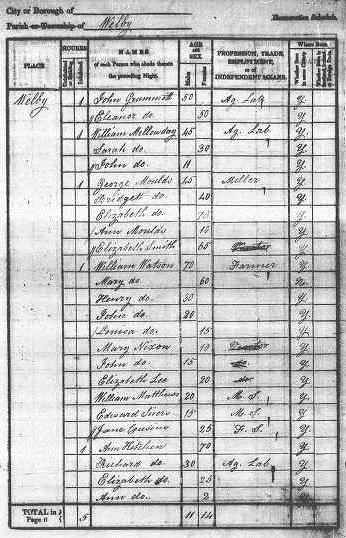 City or Borough of
Parish or Township of Welby
Enumeration Schedule.
PLACE
HOUSES
Uninhabited or Building
Inhabited
NAMES
of each Person who abode therein
the preceding Night.
AGE
and
SEX
Males
Females
PROFESSION, TRADE,
EMPLOYMENT,
or of
INDEPENDENT MEANS.
Where Born
Welby 1 John 50 Ag. Lab Y.
Eleanor do. 50 Y.
1 William Melloday 45 Ag. Lab Y.
Sarah do. 30 Y.
John do. 11 Y.
1 George Moulds 45 Meller Y.
Bridgett do. 40 Y.
Elizabeth do. Y.
Ann Moulds Y.
Elizabeth Smith 65 Y.
1 William Watson 70 Farmer Y.
Mary do. 60
Henry do. 30 Y.
John do. 20 Y.
Louisa do. 15 Y.
Mary Nixon Y.
John do. 15 do. Y.
Elizabeth Lee 20 do. Y.
William Matthews 20 M. S. Y.
Edward 15 M. S. Y.
Jane Cousins 25 F. S. Y.
1 Ann Hitchen 70 Y.
Richard do. 30 Ag. Lab Y.
Elizabeth do. 25 Y.
Ann do. 2 Y.
TOTAL in
Page 5 11 14